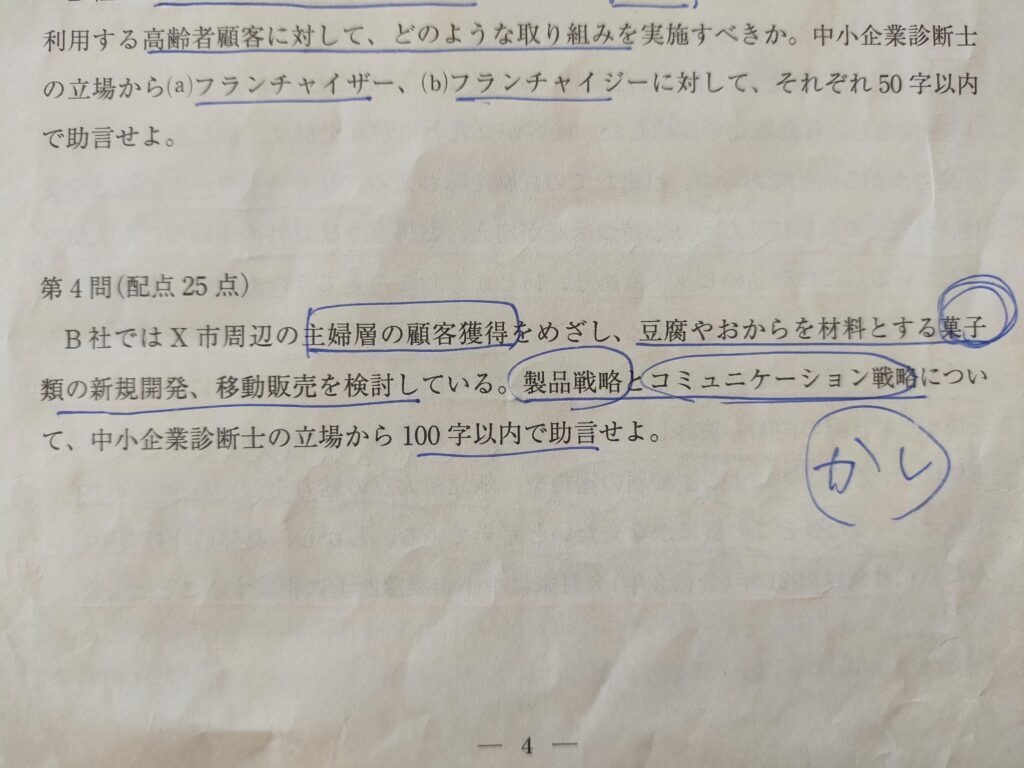 利用する高齢者顧客に対して、どのような取り組みを実施すべきか。中小企業診断士
の立場から(a)フランチャイザー、(b)フランチャイジーに対して、それぞれ50字以内
で助言せよ。
第4問(配点25点)
B社ではX市周辺の主婦層の顧客獲得をめざし、豆腐やおからを材料とする菓子
類の新規開発、移動販売を検討している。製品戦略とコミュニケーション戦略につい
て、中小企業診断士の立場から100字以内で助言せよ。
かし
— 4 —